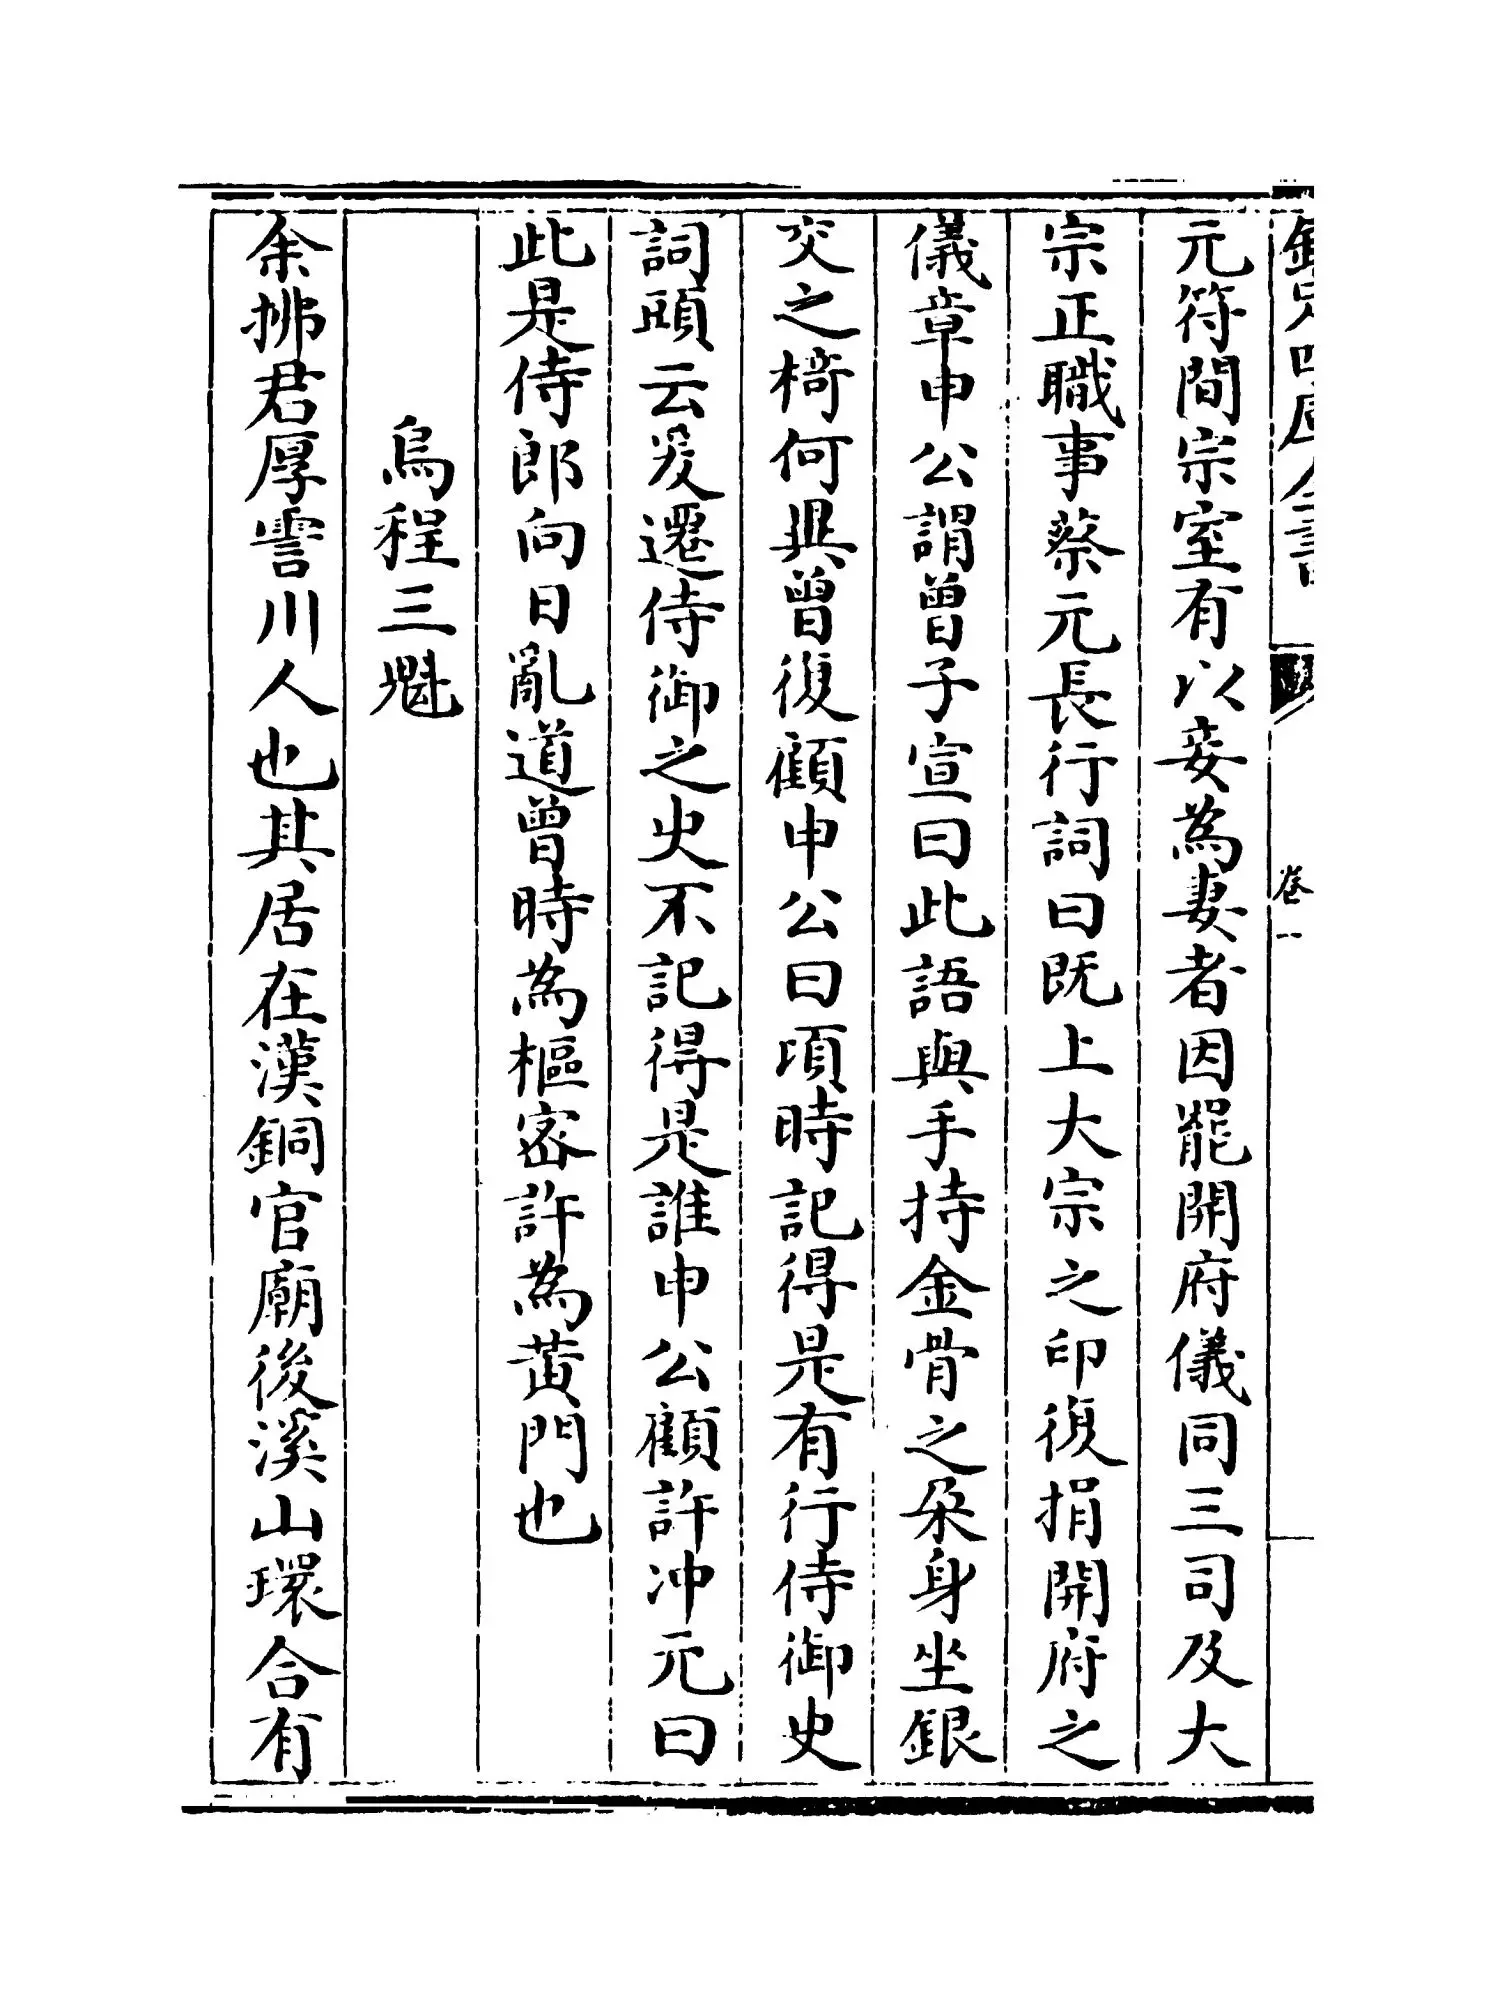 欽定四庫全書
卷一
元符間宗室有以妾為妻者因罷開府儀同三司及大
宗正職事蔡元長行詞曰既上大宗之印復捐開府之
儀章申公謂曾子宣曰此語與手持金骨之朶身坐銀
交之椅何異曾復顧申公曰頃時記得是有行侍御史
詞頭云爰遷侍御之史不記得是誰申公顧許冲元曰
此是侍郎向日亂道曾時為樞密許為黄門也
烏程三魁
余拂君厚霅川人也其居在漢銅官廟後溪山環合有